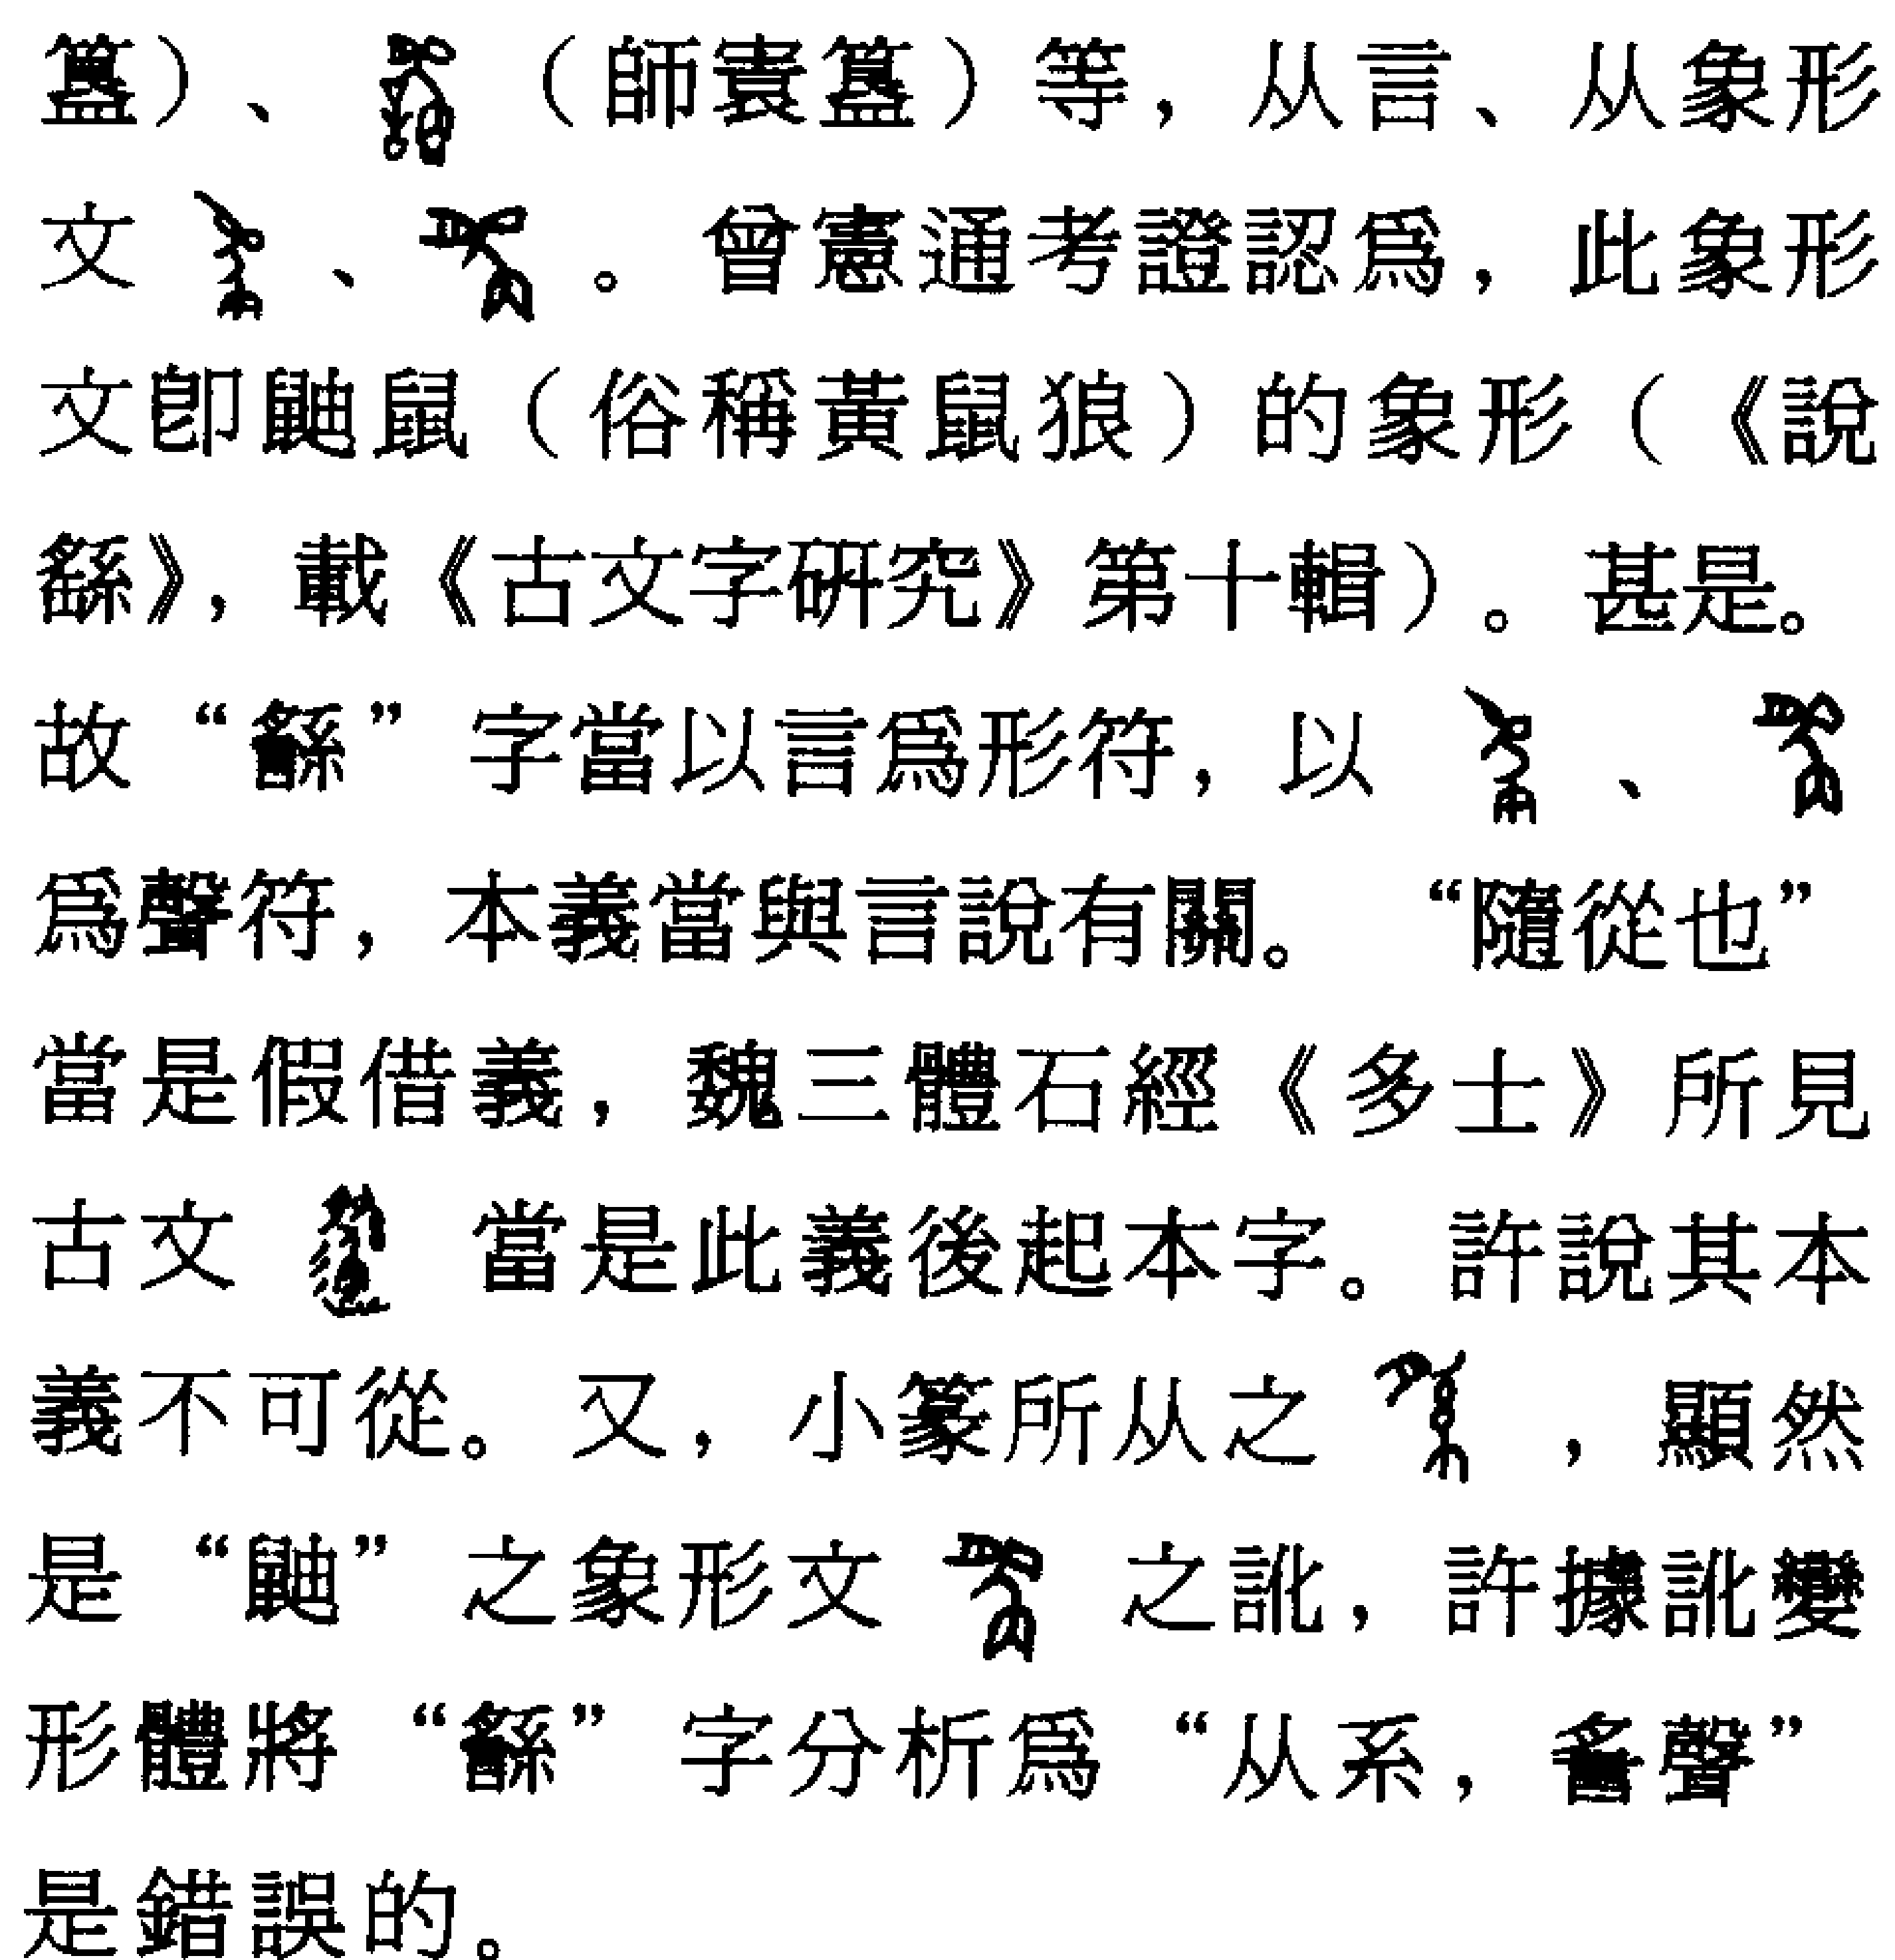 簋）、（師㝨簋）等，从言、从象形
文、。曾憲通考證認爲，此象形
文卽鼬鼠（俗稱黃鼠狼）的象形（《説
繇》，載《古文字研究》第十輯）。甚是。
故“繇”字當以言爲形符，以、
爲聲符，本義當與言説有關。“隨從也”
當是假借義，魏三體石經《多士》所見
古文當是此義後起本字。許説其本
義不可從。又，小篆所从之，顯然
是“鼬”之象形文之訛，許據訛變
形體將“繇”字分析爲“从系，䚻聲”
是錯誤的。